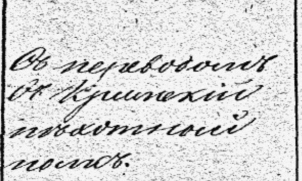 Съ переводомъ
въ Крымскій
пѣхотный
полкъ.